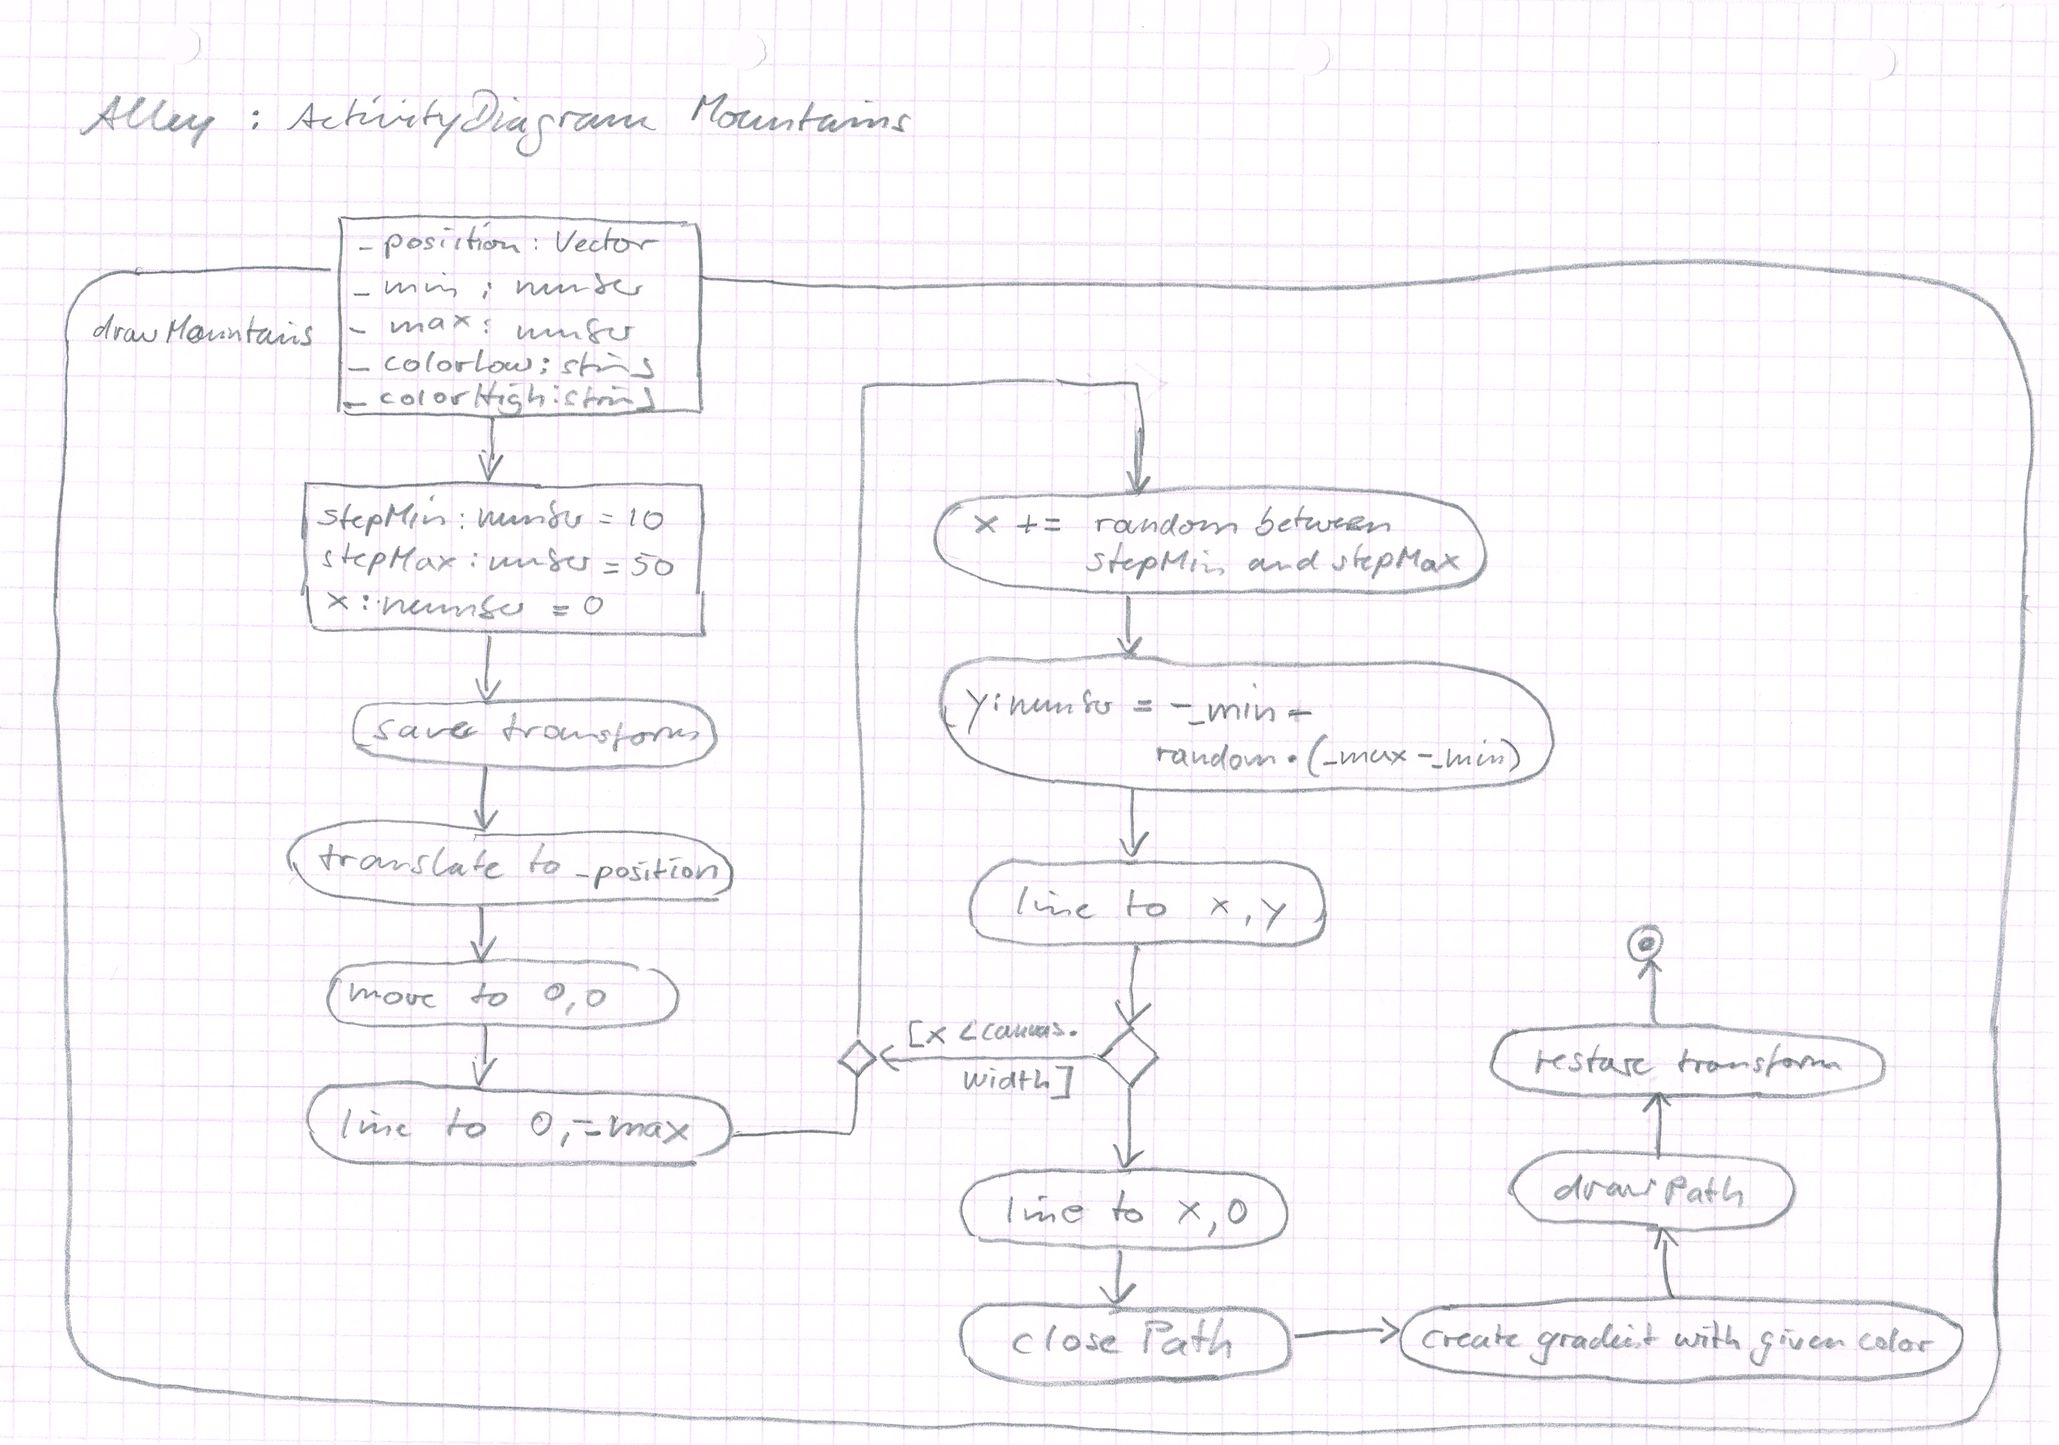 Alley : ActivityDiagram Mountains
drawMountains
_position: Vector
_min: number
_max: number
_colorLow: string
_colorHigh: string
stepMin: number = 10
stepMax: number = 50
x: number = 0
save transform
translate to _position
move to 0,0
line to 0, -_max
x += random between
stepMin and stepMax
y: number = -_min -
random • (_max - _min)
line to x, y
[x < canvas.
width]
line to x, 0
close Path
create gradient with given color
draw Path
restore transform